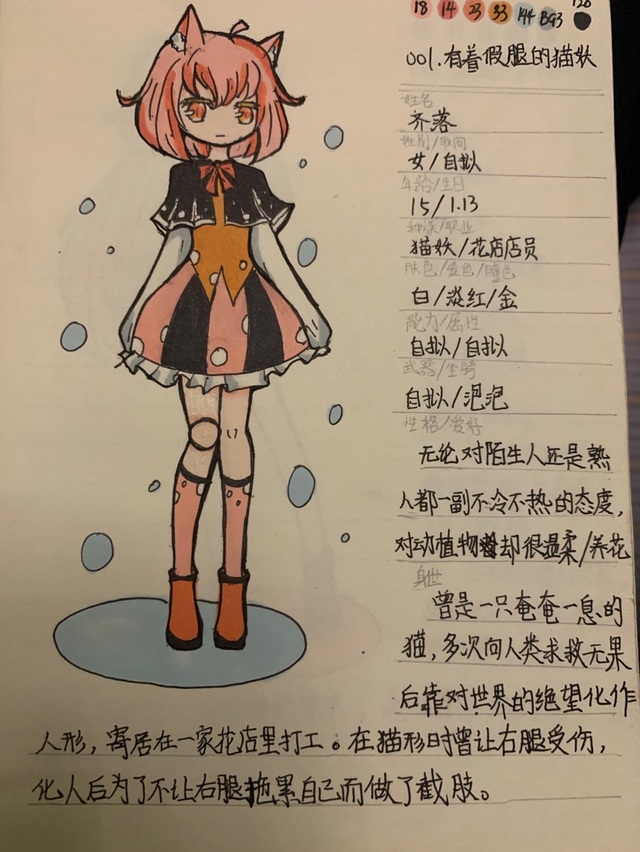 18 14 23 33 144 BG3 120
001.有着假腿的猫妖
姓名
齐落
性别/取向
女/自拟
年龄/生日
15/1.13
种族/职业
猫妖/花店店员
肤色/发色/瞳色
白/淡红/金
能力/属性
自拟/自拟
武器/坐骑
自拟/泡泡
性格/爱好
无论对陌生人还是熟
人都一副不冷不热的态度,
对动植物却很温柔/养花
身世
曾是一只奄奄一息的
猫,多次向人类求救无果
后靠对世界的绝望化作
人形,寄居在一家花店里打工。在猫形时曾让右腿受伤,
化人后为了不让右腿拖累自己而做了截肢。